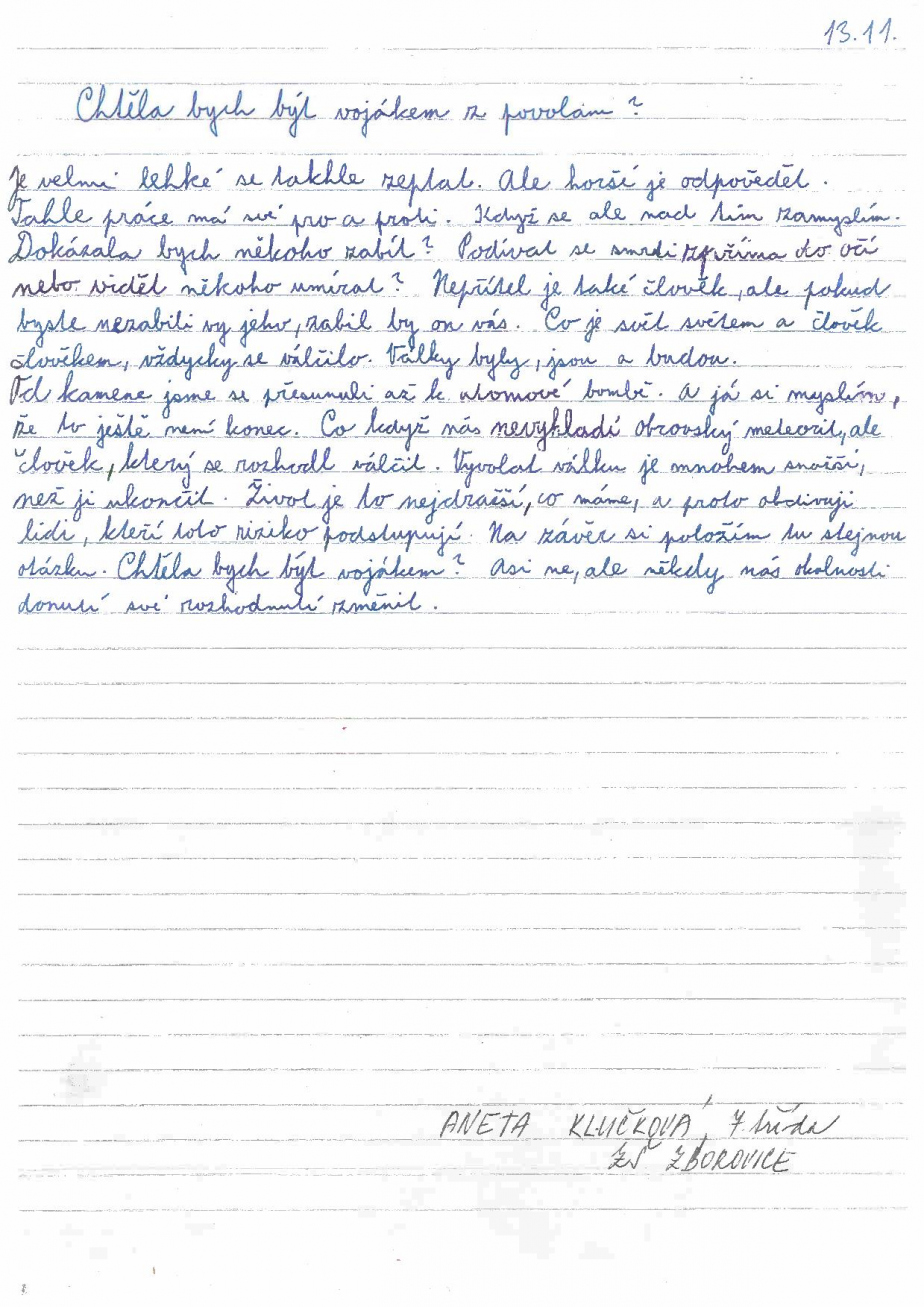 13.11.
Chtěla bych být vojákem z povolání?
Je velmi lehké se takhle zeptat. Ale horší je odpovědět.
Tahle práce má své pro a proti. Když se ale nad tím zamyslím.
Dokázala bych někoho zabít? Podívat se smrti zpříma do očí
nebo vidět někoho umírat? Nepřítel je také člověk, ale pokud
byste nezabili vy jeho, zabil by on vás. Co je svět světem a člověk
člověkem, vždycky se válčilo. Války byly, jsou a budou.
Od kamene jsme se přesunuli až k atomové bombě. A já si myslím,
že to ještě není konec. Co když nás nevykladí obrovský meteorit, ale
člověk, který se rozhodl válčit. Vyvolat válku je mnohem snažší,
než ji ukončit. Život je to nejdražší, co máme, a proto obdivuji
lidi, kteří toto riziko podstupují. Na závěr si položím tu stejnou
otázku. Chtěla bych být vojákem? Asi ne, ale někdy nás okolnosti
donutí své rozhodnutí změnit.
ANETA KLUČKOVÁ, 7 třída
ZŠ ZBOROVICE